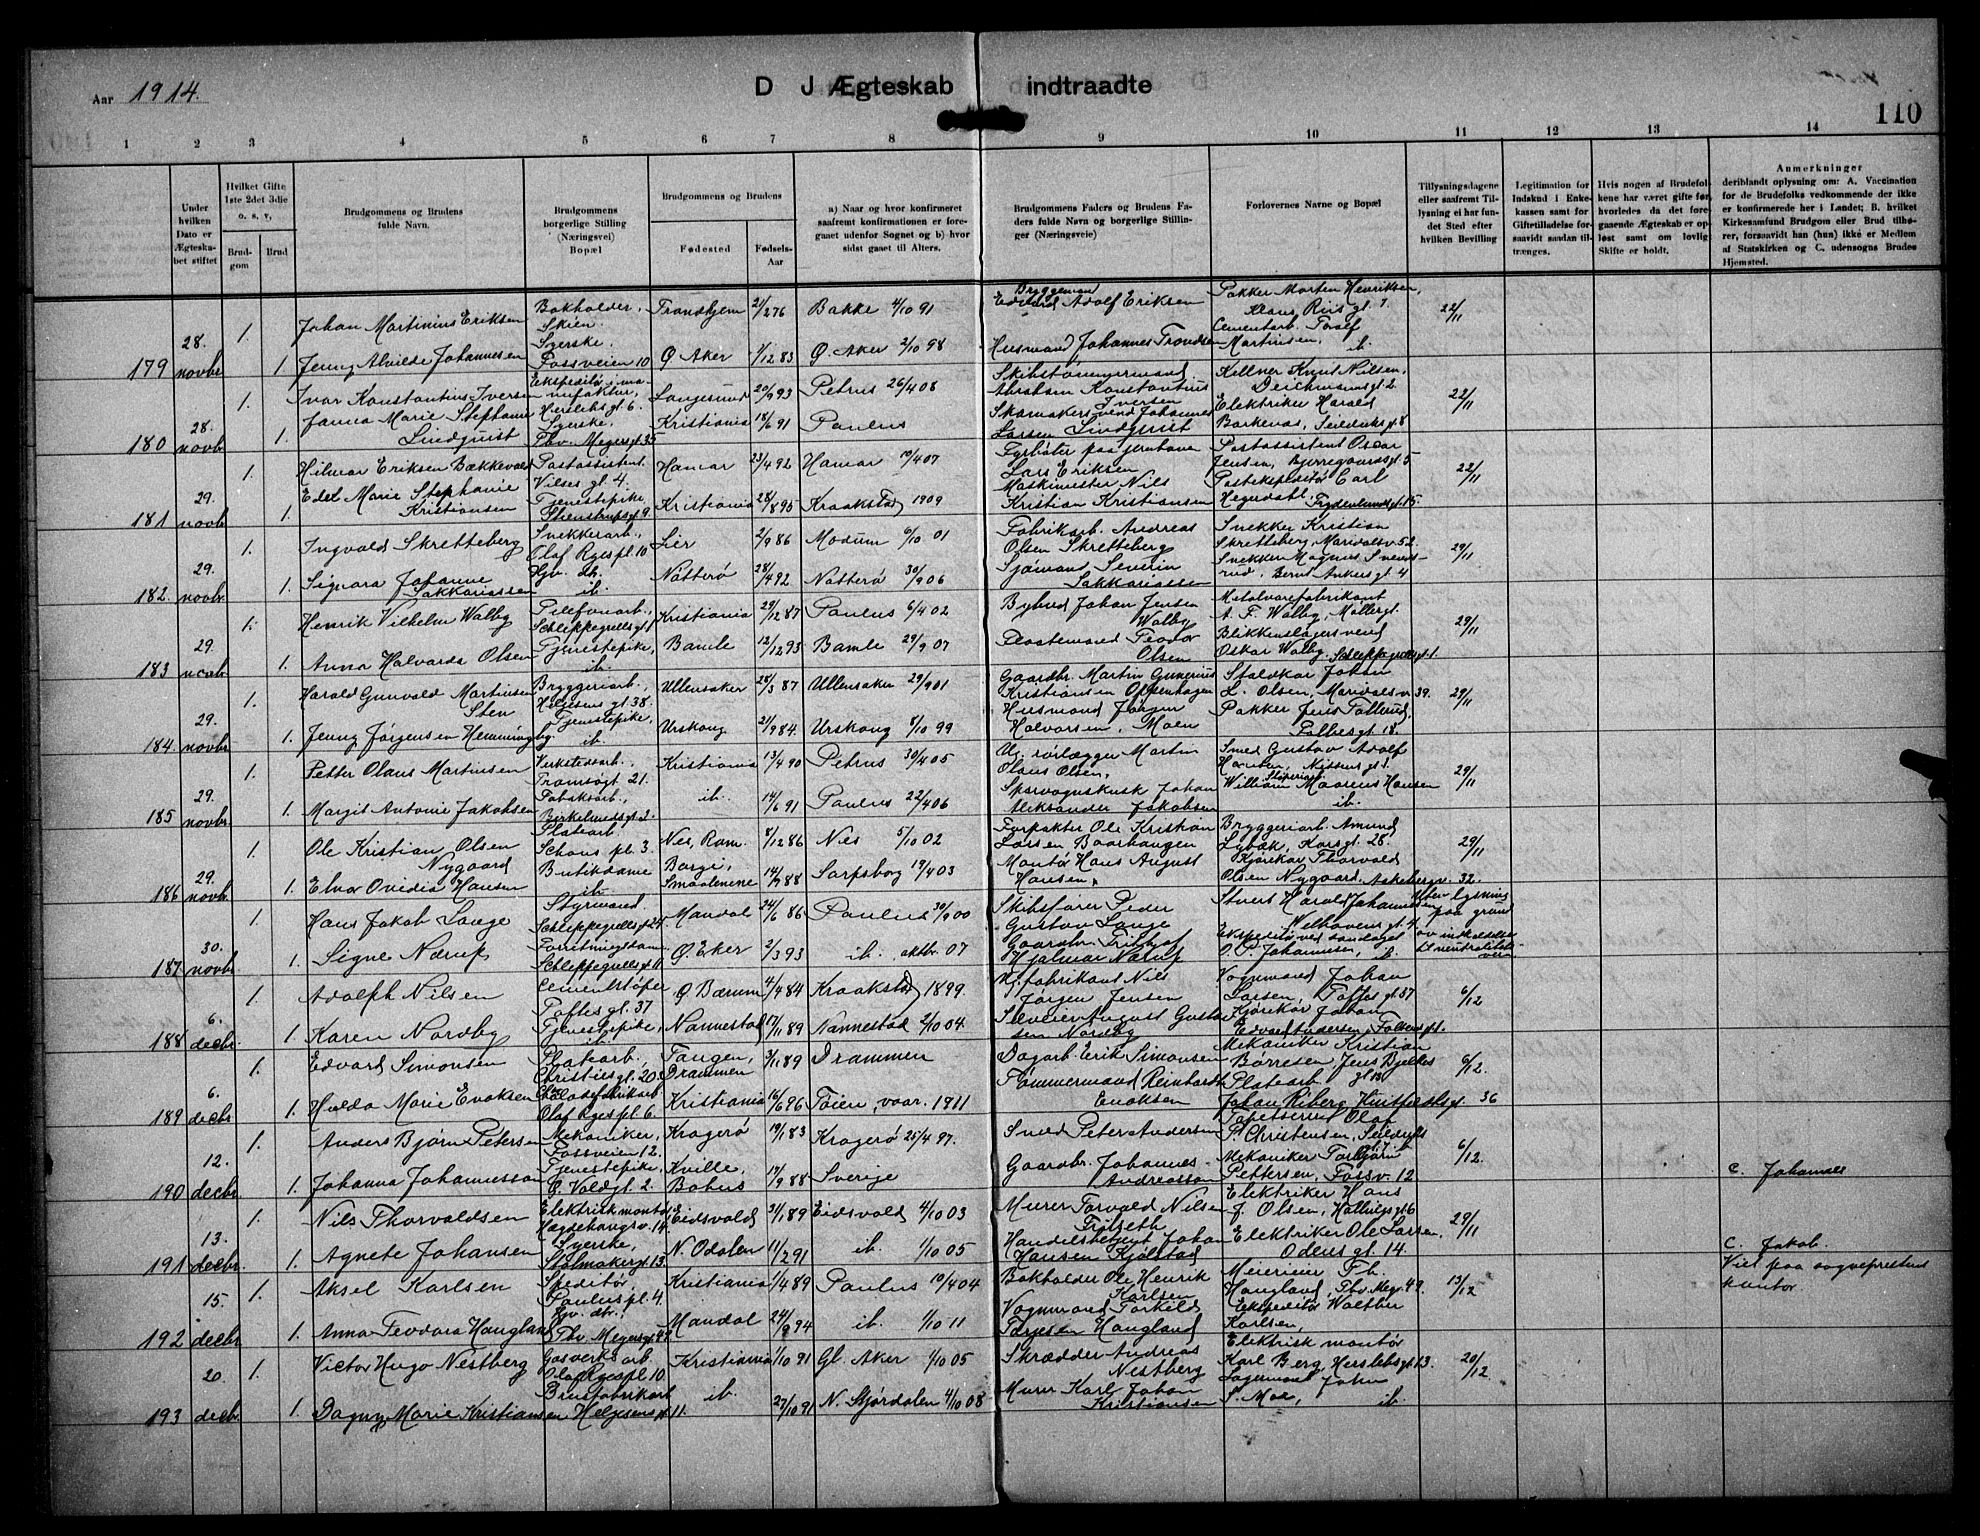 Aar 1914.
D J Ægteskab indtraadte
110
1 2 3 4 5 6 7 8 9 10 11 12 13 14
Under hvilken Dato er Ægteskabet stiftet
Hvilket Gifte 1ste 2det 3die o. s. v,
Brudgom
Brud
Brudgommens og Brudens fulde Navn.
Brudgommens borgerlige Stilling (Næringsvei) Bopæl
Brudgommens og Brudens
Fødested
Fødsels-Aar
a) Naar og hvor konfirmeret saafremt konfirmationen er foregaaet udenfor Sognet og b) hvor sidst gaaet til Alters.
Brudgommens Faders og Brudens Faders fulde Navn og borgerlige Stillinger (Næringsveie)
Forlovernes Navne og Bopæl
Tillysningsdagene eller saafremt Tillysning ei har fundet Sted efter hvilken Bevilling
Legitimation for Indskud i Enkekassen samt for Giftetilladelse forsaavidt saadan tiltrænges.
Hvis nogen af Brudefolkene har været gifte før, hvorledes da det foregaaende Ægteskab er opløst samt om lovlig Skifte er holdt.
Anmerkninger deriblandt oplysning om: A. Vaccination for de Brudefolks vedkommende der ikke er konfirmerede her i Landet; B. hvilket Kirkesamfund Brudgom eller Brud tilhører, forsaavidt han (hun) ikke er Medlem af Statskirken og C, udensogns Brudes Hjemsted.
179 28. novbr. 1. Johan Martinius Eriksen Bokholder, Skien. Trondhjem 21/2 76 Bakke 4/10 91 Bryggemand Edvard Adolf Eriksen Pakker Morten Henriksen, Klaus Riis gt. 7. 22/11
1. Jenny Alvilde Johannesen Syerske, Fossveien 10 Ø Aker 1/12 83 Ø. Aker 2/10 98 Husmand Johannes Trondsen Cementarb. Toralf Martinsen, ib.
180 28. novb. 1. Ivar Konstantius Iversen Ekspeditør i manufaktur, Herslebsgt. 6. Langesund 20/9 93 Petrus 26/4 08 Abraham Konstantius Iversen Kellner Knut Nilsen, Deichmansgt. 2. 22/11
1. Janna Marie Stephanie Lindquist Syerske, Thv. Meyersgt. 35 Kristiania 18/6 91 Paulus Skomakersvend Johannes Larsen Lindquist Elektriker Harald
181 29. novb. 1. Hilmar Eriksen Bækkevold Postassistent. Vilses gt. 4. Hamar 23/4 92 Hamar 10/4 07 Fyrbøter paa jernbane Lars Eriksen Postassistent Oscar Jensen, Bjerregaardsgt. 5 22/11
1. Edel Marie Stephanie Kristiansen Tjenestepike, Stenstrupsgt. 9. Kristiania 28/8 95 Kraakstad 1909 Maskinmester Nils Kristian Kristiansen Postekspeditør Carl Hegdahl, Frydenlundsgt. 15.
182. 29. novbr. 1. Ingvald Skretteberg Snekkerarb., Olaf Ryes pl. 10 Lier 2/9 86 Modum 6/10 01 Fabrikarb. Andreas Olsen Skretteberg Snekker Kristian Skretteberg, Maridalsv. 52. 29/11
1. Signora Johanne Sakkariassen Hjv. dtr. ib. Nøtterø 28/4 92 Nøtterø 30/9 06 Sjømand Severin Sakkariassen Snekker Magnus Bernt Ankersgt. 4
183 29. novbr. 1. Henrik Vilhelm Walby Telefonarb., Schleppegrellsgt. 1 Kristiania 29/12 87 Paulus 6/4 02 Bybud Johan Jensen Walby Metalvarefabrikant A. F. Walby, Møllergt. 29/11
1. Anna Halvarda Olsen Tjenestepike, ib. Bamle 12/12 93 Bamle 29/9 07 Teodor Olsen Blikkenslagersvend Oskar Walby, Schleppegrellsgt. 1
184. 29. novbr. 1. Harald Gunvald Martinsen Sten Bryggeriarb., Helgesens gt. 38. Ullensaker 28/3 87 Ullensaker 29/9 01 Gaardbr. Martin Gunerius Kristiansen Staldkar Johan L. Olsen, Maridalsv. 39. 29/11
1. Jenny Jørgensen Hemmingby Tjenestepike, ib. Urskoug 21/9 84. Urskoug 8/10 99 Husmand Jørgen Halvorsen, Moen Pakker Jens Tollerud, Toftesgt. 18.
185 29. novbr. 1. Petter Olaus Martinsen Verkstedsarb., Tromsøgt. 21. Kristiania 13/4 90 Petrus 30/4 05 Martin Olaus Olsen, Smed Gustav Adolf Hansen, 29/11
1. Margit Antonie Jakobsen Tobaksarb., Birkelundsgt. 2. ib. 14/6 91 Paulus 22/4 06 Sporvognskusk Johan Aleksander Jakobsen William Maarens Hansen ib.
186 29. novbr. 1. Ole Kristian Olsen Nygaard Platearb. Schous pl. 3. Nes, Rom. 8/12 86 Nes 5/10 02 Forpakter Ole Kristian Larsen Baarhaugen Bryggeriarb. Amund Lybæk, Korsgt. 28. 29/11
1. Elna Ovidia Hansen Butikdame ib. Borge, Smaalenene 14/7 88 Sarpsborg 19/4 03 Montør Hans August Hansen, Kjørekar Thorvald Olsen Nygaard, Aakebergv. 32.
187 30. novbr. 1. Hans Jakob Lange Styrmand, Schleppegrellsgt 24 Mandal 24/6 86 Paulus 30/9 00 Skibsfører Peder Gustav Lange Stuert Harald Johannesen Welhavens gt. 4 Uten lysning paa grund av indkaldelse til neutralitetsvern
1. Signe Nærup Forretningsdame Schleppegrellsgt. 11 Ø. Eker 2/3 93 ib. oktbr. 07 Gaardbr. Fritjof Hjalmar Nærup O. P. Johannesen, ib.
188 6. decbr. 1. Adolph Nilsen Cementstøper Toftes gt. 37 Ø Bærum 4/4 84 Kraakstad 1899. Nils Jørgen Jensen Vognmand Johan Larsen, Toftes gt. 37 6/12
1. Karen Nordby Tjenestepike, ib. Nannestad 17/1 89 Nannestad 2/10 04. August Gustavsen Nordby Kjørekar Johan Edvard Andersen,
189 6. decbr. 1. Edvard Simonsen Platearb., Christies gt. 20. Tangen, Drammen 3/1 89 Drammen Dagarb. Erik Simonsen Mekaniker Kristian Børresen, Jens Bjelkes gt. 6/12.
1. Hulda Marie Enoksen Chokoladefabrikarb. Olaf Ryespl. 6 Kristiania 16/6 96 Tøien, vaar. 1911 Tømmermand Reinhardt Enoksen Platearb. Johan Riberg, 36
190 12. decbr. 1. Anders Bjørn Petersen Mekaniker, Fossveien 12. Kragerø 19/1 83 Kragerø 25/4 97. Smed Peter Andersen Tapetserer Olaf P. Christensen, 6/12.
1. Johanna Johannesson Tjenestepike, C. Voldgt. 2. Kville, Bohus 14/9 88 Sverige Gaardbr. Johannes Andreasson Mekaniker Torbjørn Pettersen, Fossv. 12 C. Johannes
191 13. decbr. 1. Nils Thorvaldsen Elektriskmontør Hægdehaugsv. 14. Eidsvold 21/1 89 Eidsvold 4/10 03 Murer Torvald Nilsen Frilseth Elektriker Hans J. Olsen, Hallingsgt. 6 29/11
1. Agnete Johansen Syerske, Stolmakergt. 13. N. Odalen 11/2 91 ib. 1/10 05 Handelsbetjent Johan Hansen Kjølstad Elektriker Ole Larsen, Odens gt. 14. C. Jakob.
192 15. decbr. 1. Aksel Karlsen Speditør Pauluspl. 4. Kristiania 1/4 89 Paulus 10/4 04 Bokholder Ole Henrik Karlsen Meierieier Th. Haugland, Thv. Meyr. 49. 13/12 Viet paa sogneprestens kontor.
1. Anna Teodora Haugland Hv. dtr. Thv. Meyersgt. 49 Mandal 24/8 94 ib. 1/10 11 Vognmand Torkild Torjesen Haugland Ekspeditør Walther Karlsen,
193 20. decbr. 1. Victor Hugo Nestberg Gasverksarb. Olaf Ryespl. 10. Kristiania 1/10 91 Gl. Aker 1/10 05 Skrædder Andreas Nestberg Elektrisk montør Karl Berg, Herslebsgt. 13. 20/12
1. Dagny Marie Kristiansen Brusfabrikarb. Helgesensgt. 11. ib. 27/10 91 N. Stjørdalen 4/10 08 Murer Karl Johan Kristiansen Lagermand John S. Moe, ib.